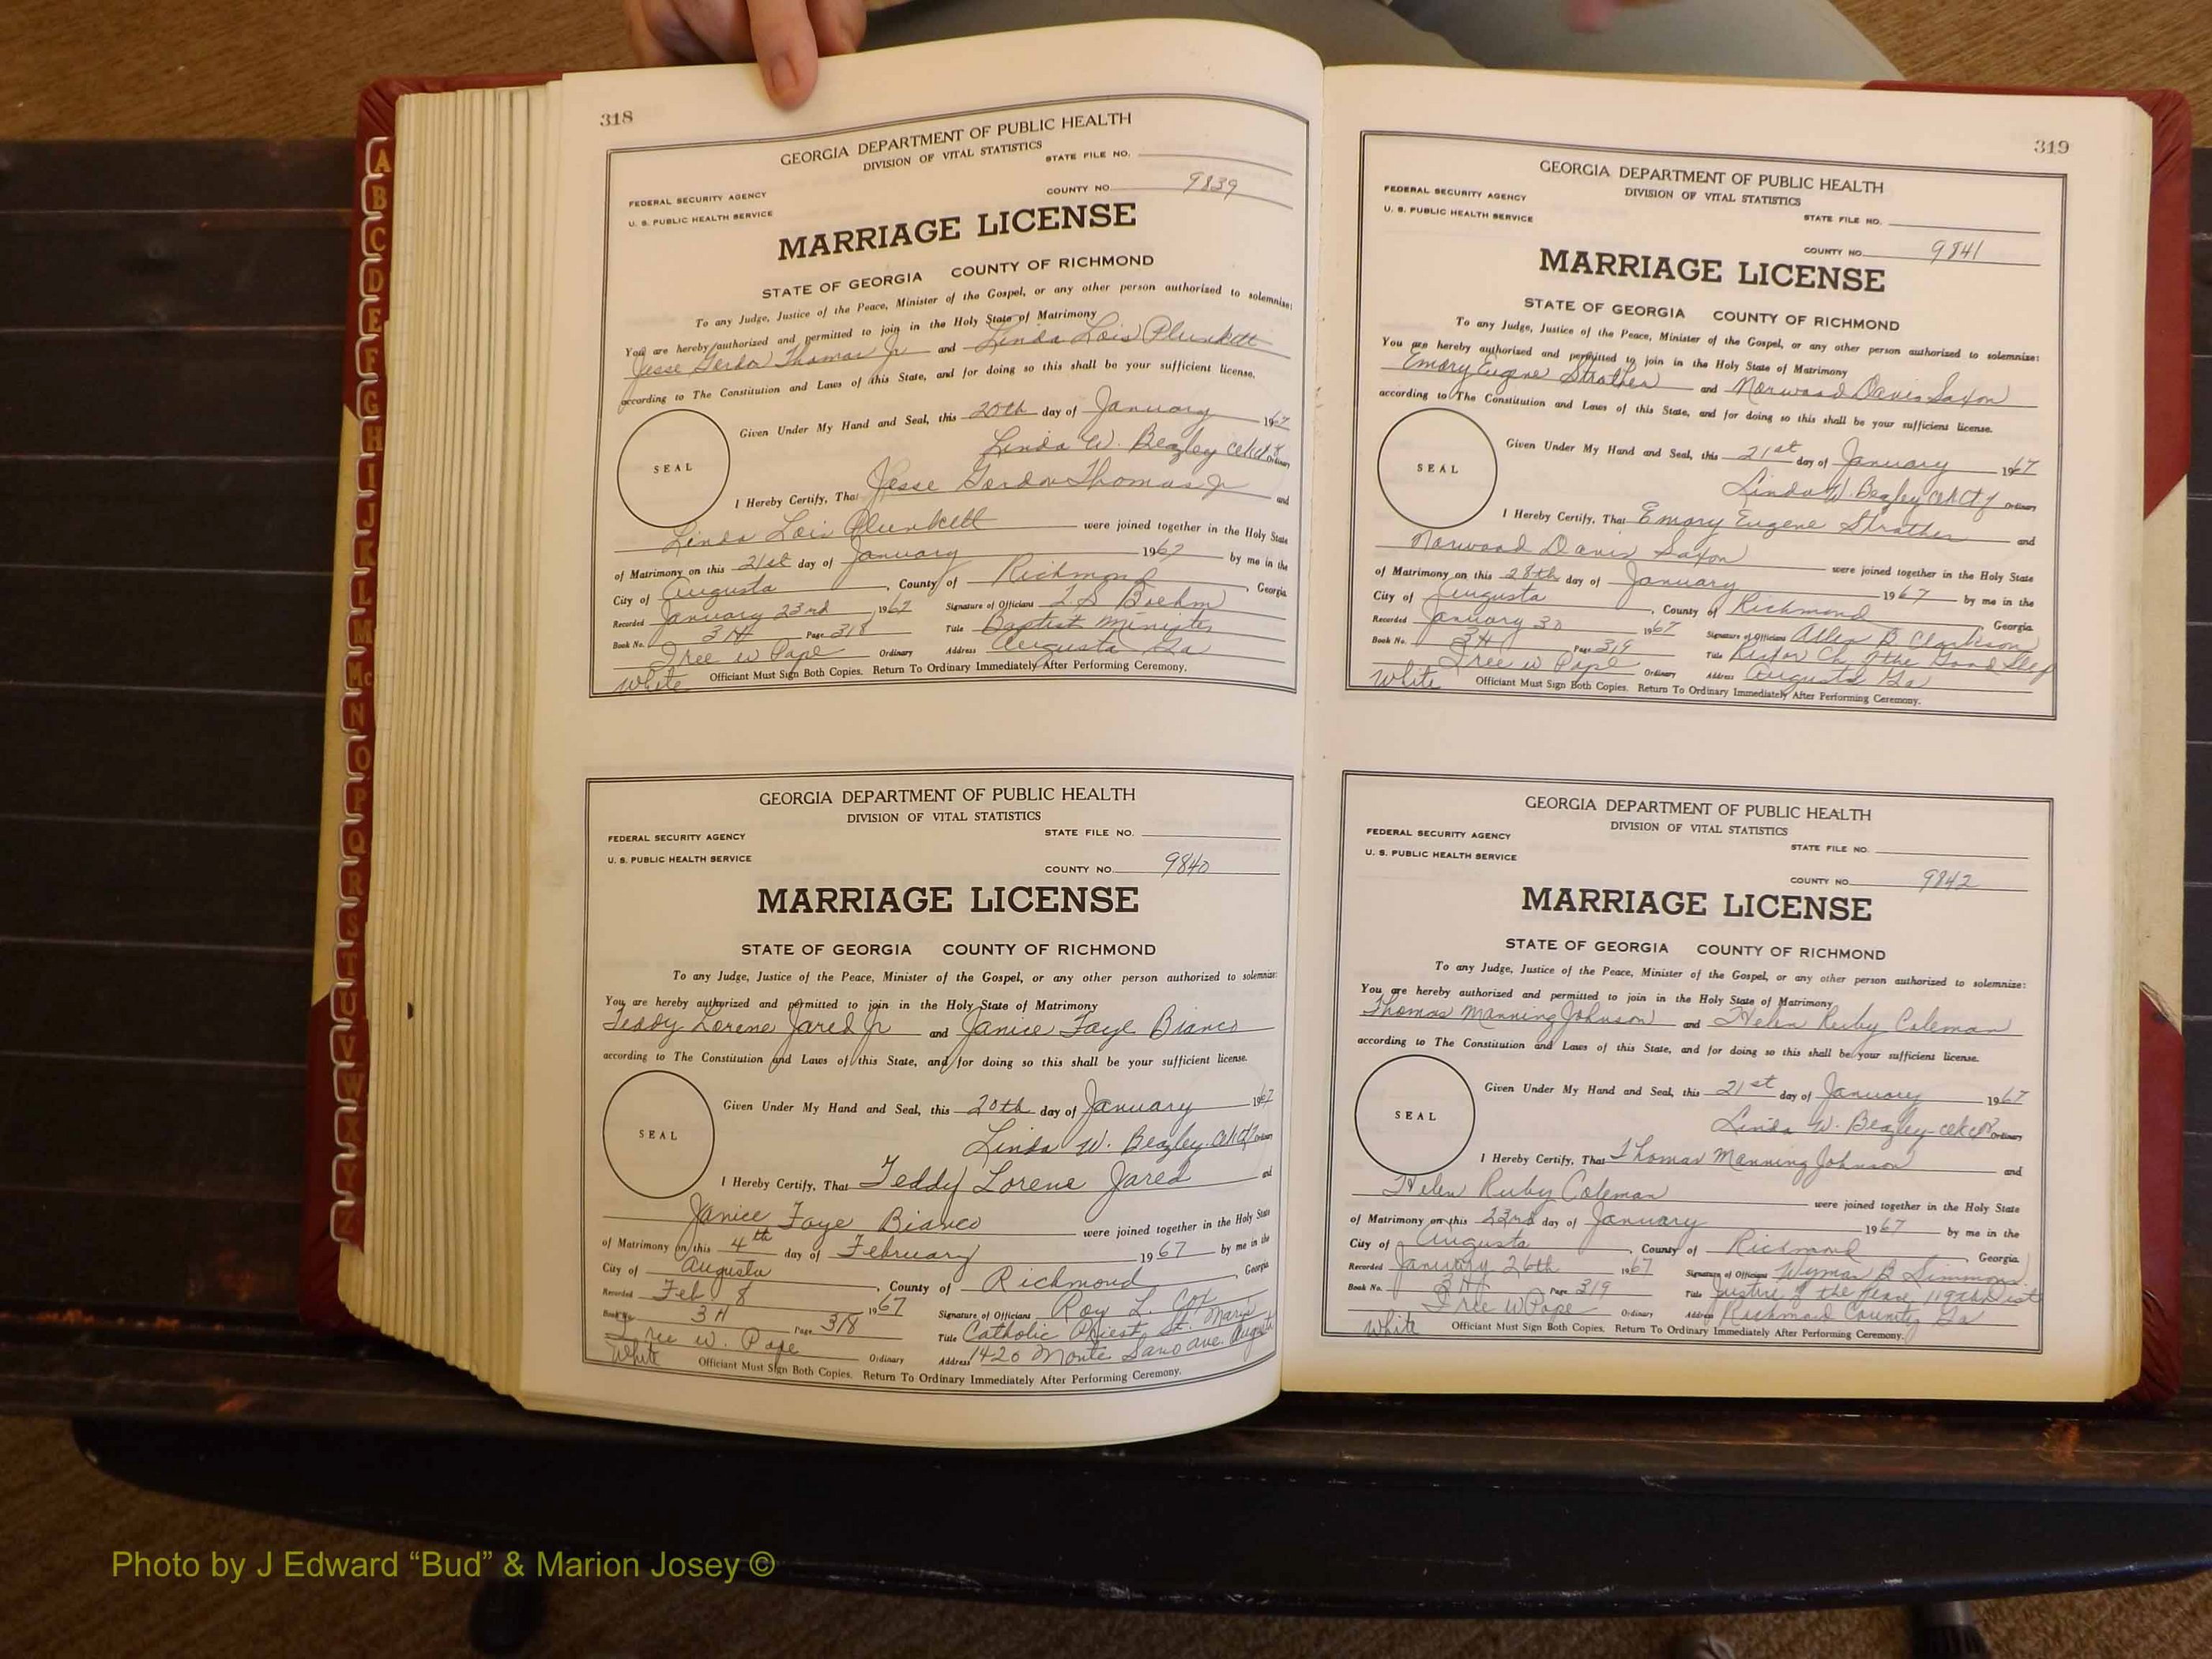 A
B
C
D
E
F
G
H
I
J
K
L
M
Mc
N
O
P
Q
R
S
T
U
V
W
X
Y
Z
318
GEORGIA DEPARTMENT OF PUBLIC HEALTH
DIVISION OF VITAL STATISTICS
STATE FILE NO.
FEDERAL SECURITY AGENCY
COUNTY NO. 9839
U. S. PUBLIC HEALTH SERVICE
MARRIAGE LICENSE
STATE OF GEORGIA COUNTY OF RICHMOND
To any Judge, Justice of the Peace, Minister of the Gospel, or any other person authorized to solemnize:
You are hereby authorized and permitted to join in the Holy State of Matrimony
Jesse Gordon Thomas Jr and Linda Lois Plunkett
according to The Constitution and Laws of this State, and for doing so this shall be your sufficient license.
Given Under My Hand and Seal, this 20th day of January 1967
Linda W. Beazley Ordinary
SEAL
I Hereby Certify, That Jesse Gordon Thomas Jr and
Linda Lois Plunkett were joined together in the Holy State
of Matrimony on this 21st day of January 1967 by me in the
City of Augusta, County of Richmond, Georgia
Recorded January 23rd, 1967 Signature of Officiant L. S. Boehm
Book No. 3H Page 318 Title Baptist Minister
Tree W Pope Ordinary Address Augusta Ga
White Officiant Must Sign Both Copies. Return To Ordinary Immediately After Performing Ceremony.
GEORGIA DEPARTMENT OF PUBLIC HEALTH
DIVISION OF VITAL STATISTICS
FEDERAL SECURITY AGENCY STATE FILE NO.
U. S. PUBLIC HEALTH SERVICE
COUNTY NO. 9840
MARRIAGE LICENSE
STATE OF GEORGIA COUNTY OF RICHMOND
To any Judge, Justice of the Peace, Minister of the Gospel, or any other person authorized to solemnize:
You are hereby authorized and permitted to join in the Holy State of Matrimony
Teddy Lorene Jared Jr and Janice Faye Bianco
according to The Constitution and Laws of this State, and for doing so this shall be your sufficient license.
Given Under My Hand and Seal, this 20th day of January 1967
Linda W. Beazley Ordinary
SEAL
I Hereby Certify, That Teddy Lorene Jared and
Janice Faye Bianco were joined together in the Holy State
of Matrimony on this 4th day of February 1967 by me in the
City of Augusta, County of Richmond, Georgia
Recorded Feb 8 1967 Signature of Officiant Roy L. Cox
Book No. 3H Page 318 Title Catholic Priest St. Mary's
Tree W. Pope Ordinary Address 1420 Monte Sano ave. Augusta
White Officiant Must Sign Both Copies. Return To Ordinary Immediately After Performing Ceremony.
319
GEORGIA DEPARTMENT OF PUBLIC HEALTH
DIVISION OF VITAL STATISTICS
FEDERAL SECURITY AGENCY
U. S. PUBLIC HEALTH SERVICE STATE FILE NO.
COUNTY NO. 9841
MARRIAGE LICENSE
STATE OF GEORGIA COUNTY OF RICHMOND
To any Judge, Justice of the Peace, Minister of the Gospel, or any other person authorized to solemnize:
You are hereby authorized and permitted to join in the Holy State of Matrimony
Emory Eugene Strather and Norwood Davis Saxon
according to The Constitution and Laws of this State, and for doing so this shall be your sufficient license.
Given Under My Hand and Seal, this 21st day of January 1967
Linda W. Beazley Ordinary
SEAL
I Hereby Certify, That Emory Eugene Strather and
Norwood Davis Saxon were joined together in the Holy State
of Matrimony on this 28th day of January 1967 by me in the
City of Augusta, County of Richmond, Georgia
Recorded January 30 1967 Signature of Officiant Allen B Clarkson
Book No. 3H Page 319 Title Rector Ch of the Good Shep
Tree W Pope Ordinary Address Augusta Ga
White Officiant Must Sign Both Copies. Return To Ordinary Immediately After Performing Ceremony.
GEORGIA DEPARTMENT OF PUBLIC HEALTH
DIVISION OF VITAL STATISTICS
FEDERAL SECURITY AGENCY
STATE FILE NO.
U. S. PUBLIC HEALTH SERVICE
COUNTY NO. 9842
MARRIAGE LICENSE
STATE OF GEORGIA COUNTY OF RICHMOND
To any Judge, Justice of the Peace, Minister of the Gospel, or any other person authorized to solemnize:
You are hereby authorized and permitted to join in the Holy State of Matrimony
Thomas Manning Johnson and Helen Ruby Coleman
according to The Constitution and Laws of this State, and for doing so this shall be your sufficient license.
Given Under My Hand and Seal, this 21st day of January 1967
Linda W. Beazley Ordinary
SEAL
I Hereby Certify, That Thomas Manning Johnson and
Helen Ruby Coleman were joined together in the Holy State
of Matrimony on this 23rd day of January 1967 by me in the
City of Augusta, County of Richmond, Georgia
Recorded January 26th 1967 Signature of Officiant Wyman B Simmons
Book No. 3H Page 319 Title Justice of the Peace 119th Dist
Tree W Pope Ordinary Address Richmond County Ga
White Officiant Must Sign Both Copies. Return To Ordinary Immediately After Performing Ceremony.
Photo by J Edward “Bud” & Marion Josey ©